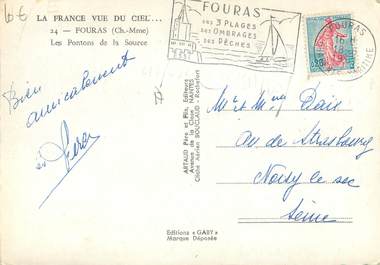 10€
LA FRANCE VUE DU CIEL...
24 — FOURAS (Ch.-Mme)
Les Pontons de la Source
FOURAS
SES 3 PLAGES
SES OMBRAGES
SES PÊCHES
FOURAS
Bien
amicalement
ARTAUD Père et Fils, Editeurs
Avenue de la Close NANTES
Cliché Aérien BOUCLAUD - Rochefort
Mr et Mme
Av de Strasbourg
Noisy le sec
Seine
Editions «GABY»
Marque Déposée